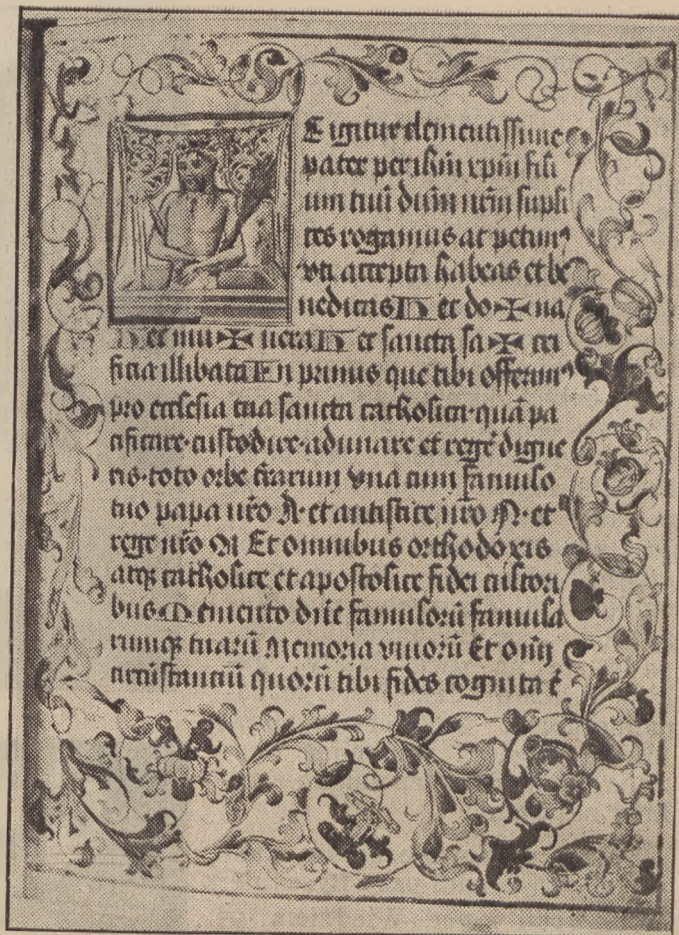 E igitur clementissime
pater per ihm xpm fili
um tuū dnm nrm supli
ces rogamus ac petim⁹
vti accepta habeas et be
nedicas H ec do ✠ na
H ec mu ✠ nera H ec sancta sa ✠ cri
ficia illibata I n primis que tibi offerim⁹
pro ecclesia tua sancta catholica · quā pa
cificare · custodire · adunare et regē digne
ris · toto orbe t̄rarum vna cum famulo
tuo papa nr̄o N · et antistite nr̄o N · et
rege nr̄o N Et omnibus orthodoxis
atqꝫ catholice et apostolice fidei cultori
bus M emento dn̄e famulorū famula
rumqꝫ tuarū Memoria viuorū Et om̄i
circūstanciū quorū tibi fides cognita ē